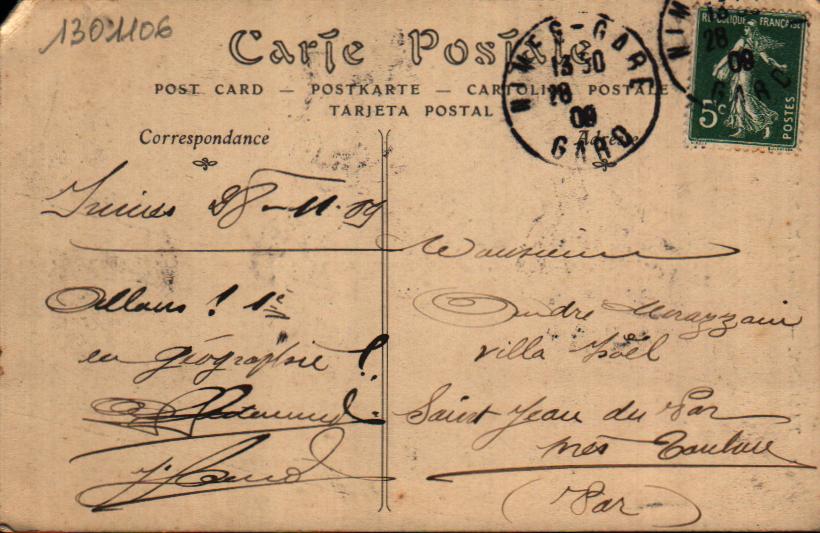 1301106
Carte Postale
POST CARD — POSTKARTE — CARTOLINA POSTALE
TARJETA POSTAL
Correspondance
Adresse
NIMES-GARE
13 30
28
09
GARD
REPUBLIQUE FRANÇAISE
5c
POSTES
28-11-09
Allons ! 1e
en géographie !
Monsieur
André
villa Noël
Saint Jean du Var
près Toulon
(Var)